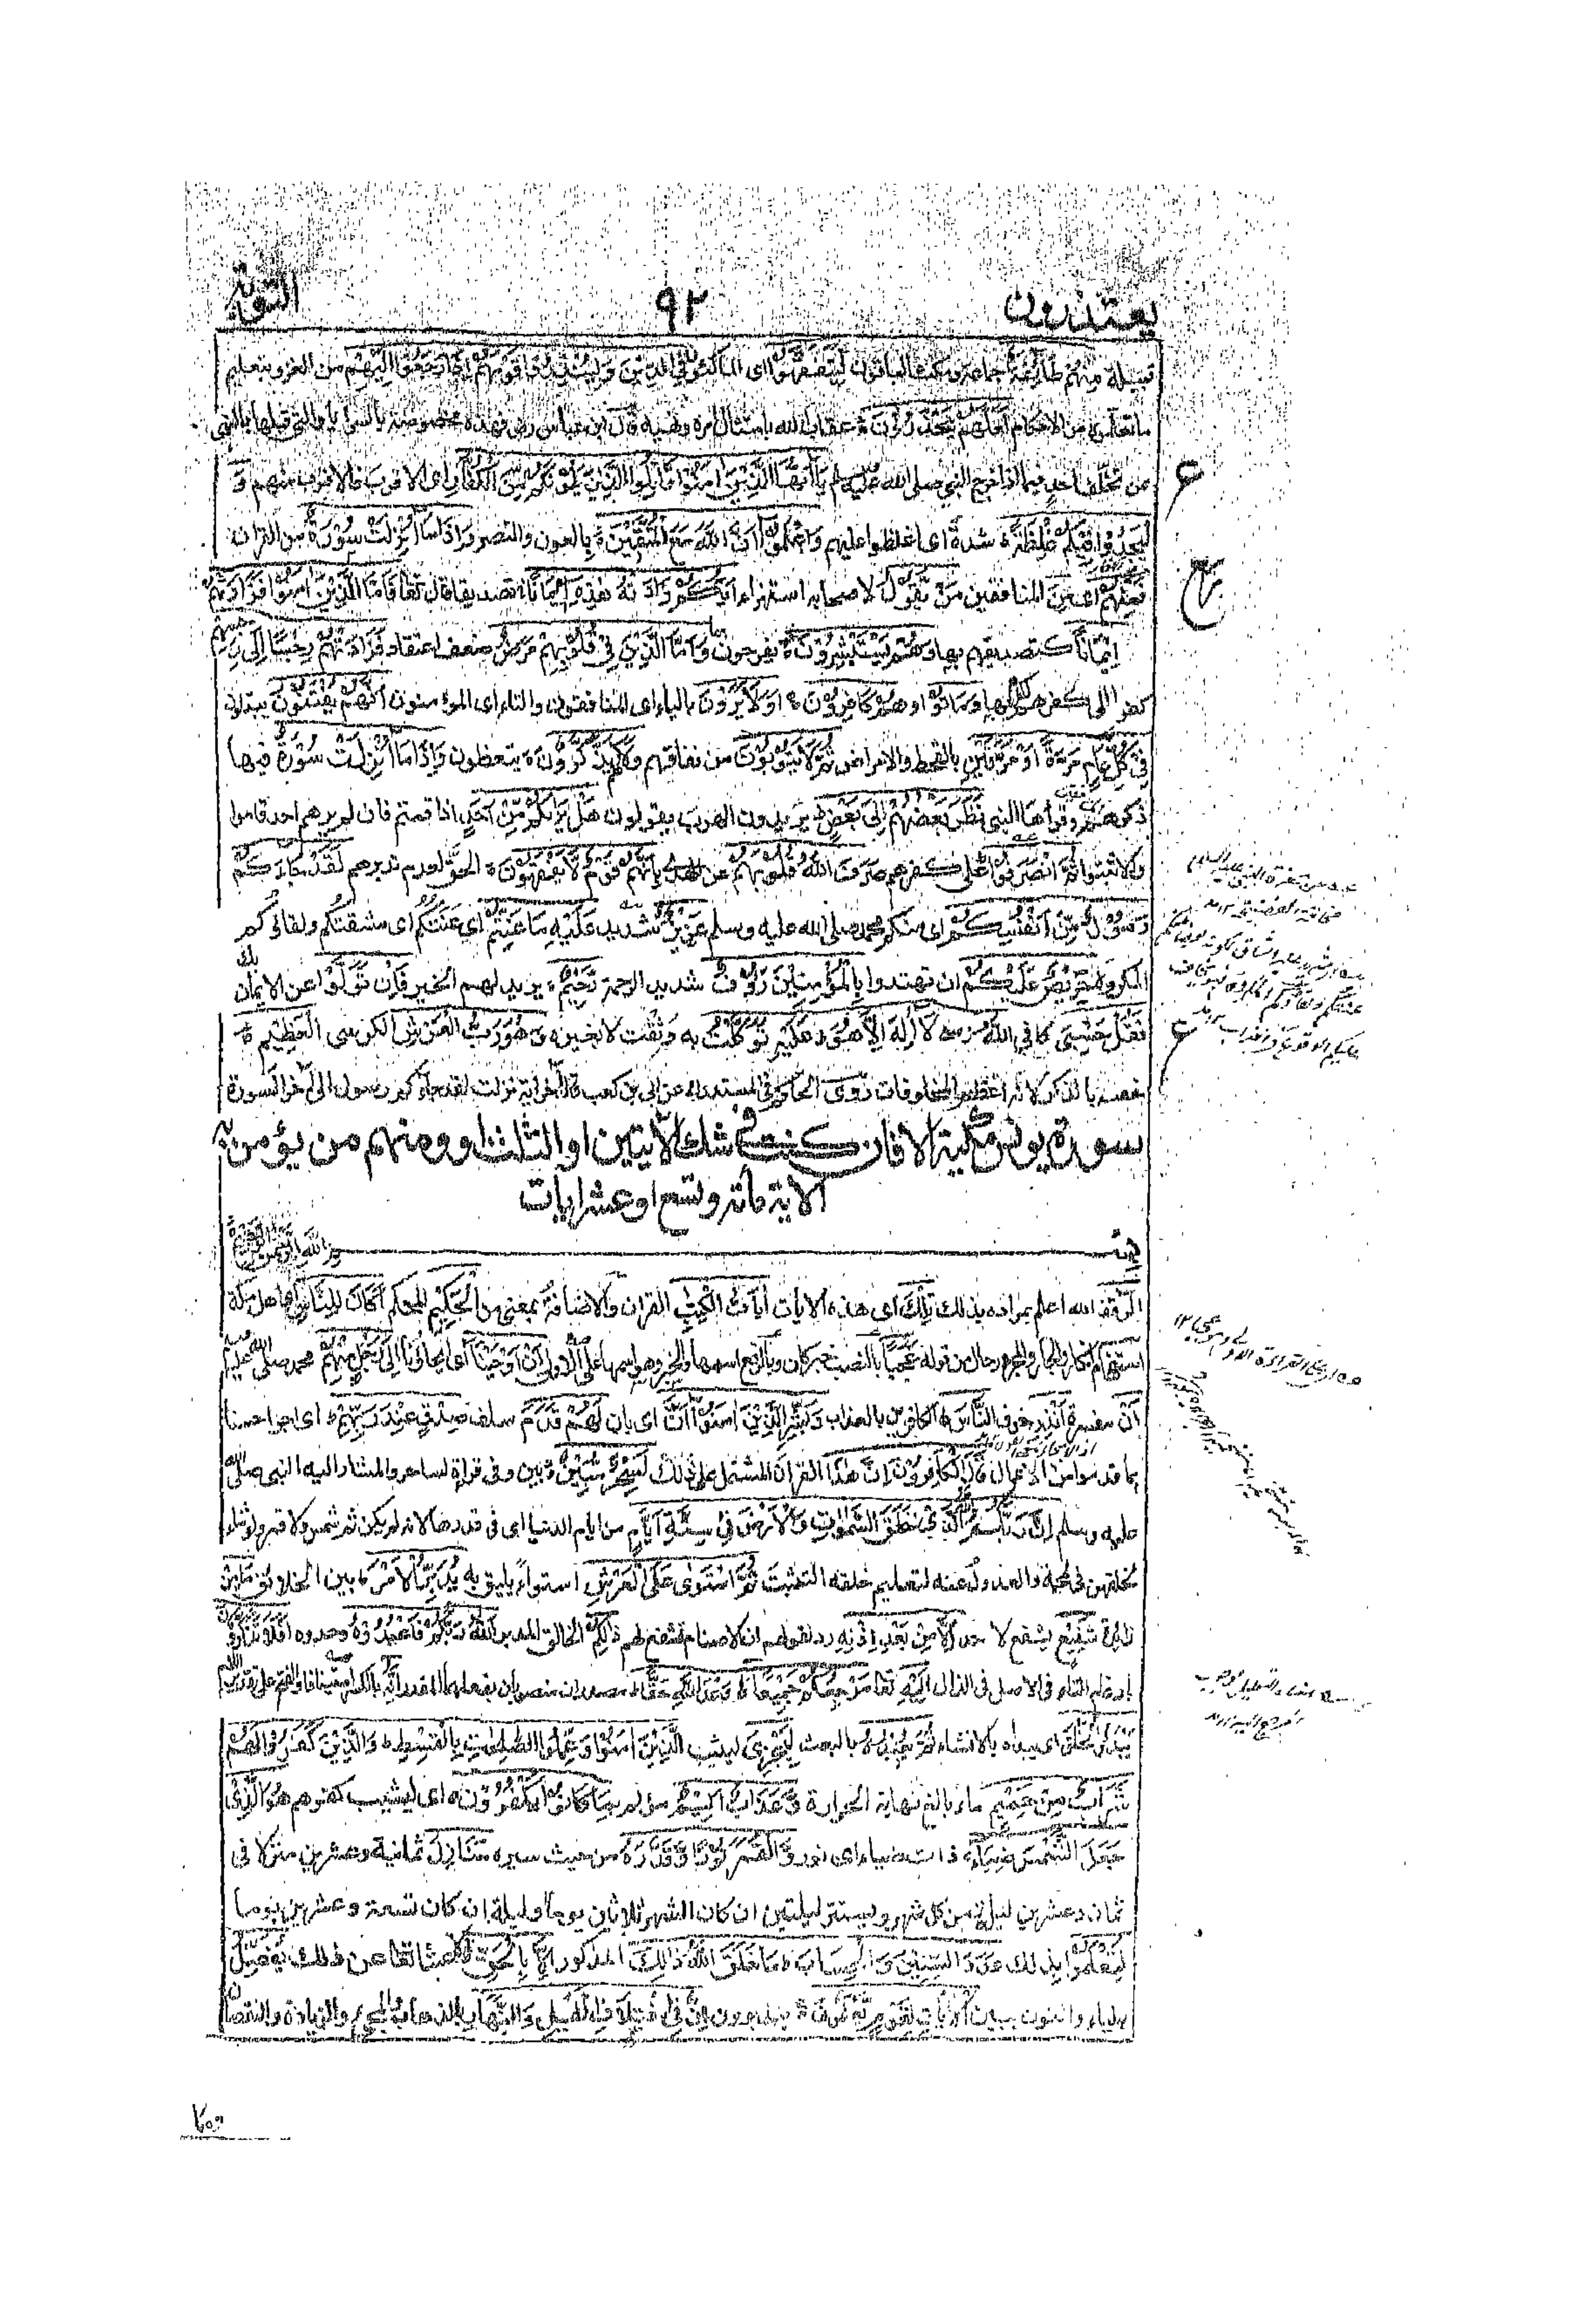 يعتذرون ٩٢ التوبة
قبيلة مِنْهُمْ طَائِفَةٌ جماعة ومكث الباقون لِيَتَفَقَّهُوْا اى الماكثون فِي الدِّيْنِ وَلِيُنْذِرُوْا قَوْمَهُمْ اِذَا رَجَعُوْا اِلَيْهِمْ من الغزو بتعليم
ما تعلموه من الاحكام لَعَلَّهُمْ يَحْذَرُوْنَ عقاب الله بامتثال امره ونهيه قال ابن عباس رض فهذه مخصوصة بالسرايا والتى قبلها بالنهى
عن تخلف احد فيما اذا خرج النبى صلى الله عليه وسلم يَا اَيُّهَا الَّذِيْنَ اٰمَنُوْا قَاتِلُوا الَّذِيْنَ يَلُوْنَكُمْ مِنَ الْكُفَّارِ اى الاقرب فالاقرب منهم وَ
لْيَجِدُوْا فِيْكُمْ غِلْظَةً شدة اى اغلظوا عليهم وَاعْلَمُوْا اَنَّ اللّٰهَ مَعَ الْمُتَّقِيْنَ بالعون والنصر وَاِذَا مَا اُنْزِلَتْ سُوْرَةٌ من القران
فَمِنْهُمْ اى من المنافقين مَنْ يَقُوْلُ لاصحابه استهزاء اَيُّكُمْ زَادَتْهُ هٰذِهٖ اِيْمَانًا تصديقا قال تعا فَاَمَّا الَّذِيْنَ اٰمَنُوْا فَزَادَتْهُمْ
اِيْمَانًا لتصديقهم بها وَهُمْ يَسْتَبْشِرُوْنَ يفرحون بها وَاَمَّا الَّذِيْنَ فِيْ قُلُوْبِهِمْ مَرَضٌ ضعف اعتقاد فَزَادَتْهُمْ رِجْسًا اِلٰى رِجْسِهِمْ
كفرا الى كفرهم لكفرهم بها وَمَاتُوْا وَهُمْ كَافِرُوْنَ اَوَلَا يَرَوْنَ بالياء اى المنافقون والتاء اى المؤمنون اَنَّهُمْ يُفْتَنُوْنَ يبتلون
فِيْ كُلِّ عَامٍ مَرَّةً اَوْ مَرَّتَيْنِ بالقحط والامراض ثُمَّ لَا يَتُوْبُوْنَ من نفاقهم وَلَا هُمْ يَذَّكَّرُوْنَ يتعظون وَاِذَا مَا اُنْزِلَتْ سُوْرَةٌ فيها
ذكرهم وقرأها النبى نَظَرَ بَعْضُهُمْ اِلٰى بَعْضٍ يريدون الهرب يقولون هَلْ يَرَاكُمْ مِنْ اَحَدٍ اذا قمتم فان لم يرهم احد قاموا
ولا ثبتوا ثُمَّ انْصَرَفُوْا على كفرهم صَرَفَ اللّٰهُ قُلُوْبَهُمْ عن الهدى بِاَنَّهُمْ قَوْمٌ لَا يَفْقَهُوْنَ الحق لعدم تدبرهم لَقَدْ جَاءَكُمْ
رَسُوْلٌ مِنْ اَنْفُسِكُمْ اى منكم محمد صلى الله عليه وسلم عَزِيْزٌ شديد عَلَيْهِ مَا عَنِتُّمْ اى عنتكم اى مشقتكم ولقاؤكم
المكروه حَرِيْصٌ عَلَيْكُمْ ان تهتدوا بِالْمُؤْمِنِيْنَ رَءُوْفٌ شديد الرحمة رَحِيْمٌ يريد لهم الخير فَاِنْ تَوَلَّوْا عن الايمان بك
فَقُلْ حَسْبِيَ كافى اللّٰهُ لَا اِلٰهَ اِلَّا هُوَ عَلَيْهِ تَوَكَّلْتُ به وثقت لا بغيره وَهُوَ رَبُّ الْعَرْشِ الكرسى الْعَظِيْمِ
خصه بالذكر لانه اعظم المخلوقات روى الحاكم فى المستدرك عن ابى بن كعب قال اخر اية نزلت لقد جاءكم رسول الى اخر السورة
سورة يونس مكية الا فان كنت فى شك الآيتين او الثلث او ومنهم من يؤمن به
الاية مائة وتسع او عشر ايات
الله الرحمن الرحيم
الٓرٰ الله اعلم بمراده بذلك تِلْكَ اى هذه الايات اٰيَاتُ الْكِتٰبِ القران والاضافة بمعنى من الْحَكِيْمِ المحكم اَكَانَ لِلنَّاسِ اى اهل مكة
استفهام انكار والجار والمجرور حال من قوله عَجَبًا بالنصب خبر كان وبالرفع اسمها والخبر وهو اسمها على الاول اَنْ اَوْحَيْنَا اى ايحاؤنا اِلٰى رَجُلٍ مِنْهُمْ محمد صلى الله عليه وسلم
اَنْ مفسرة اَنْذِرِ خوف النَّاسَ الكافرين بالعذاب وَبَشِّرِ الَّذِيْنَ اٰمَنُوْا اَنَّ اى بان لَهُمْ قَدَمَ سلف صِدْقٍ عِنْدَ رَبِّهِمْ اى اجرا حسنا
بما قدموا من الاعمال قَالَ الْكَافِرُوْنَ اِنَّ هٰذَا القران المشتمل على ذلك لَسِحْرٌ مُبِيْنٌ بين وفى قراءة لساحر والمشار اليه النبى صلى الله
عليه وسلم اِنَّ رَبَّكُمُ اللّٰهُ الَّذِيْ خَلَقَ السَّمٰوٰتِ وَالْاَرْضَ فِيْ سِتَّةِ اَيَّامٍ من ايام الدنيا اى فى قدرها لانه لم يكن ثم شمس ولا قمر ولو شاء
لخلقهن فى لمحة والعدول عنه لتعليم خلقه التثبت ثُمَّ اسْتَوٰى عَلَى الْعَرْشِ استواء يليق به يُدَبِّرُ الْاَمْرَ بين الخلائق مَا مِنْ
زائدة شَفِيْعٍ يشفع لاحد اِلَّا مِنْ بَعْدِ اِذْنِهٖ رد لقولهم ان الاصنام تشفع لهم ذٰلِكُمُ الخالق المدبر اللّٰهُ رَبُّكُمْ فَاعْبُدُوْهُ وحدوه اَفَلَا تَذَكَّرُوْنَ
بادغام التاء فى الاصل فى الذال اِلَيْهِ تعا مَرْجِعُكُمْ جَمِيْعًا وَعْدَ اللّٰهِ حَقًّا مصدران منصوبان بفعلهما المقدر اِنَّهٗ بالكسر استينافا والفتح على تقدير اللام
يَبْدَؤُ الْخَلْقَ اى بدأه بالانشاء ثُمَّ يُعِيْدُهٗ بالبعث لِيَجْزِيَ ليثيب الَّذِيْنَ اٰمَنُوْا وَعَمِلُوا الصّٰلِحٰتِ بِالْقِسْطِ وَالَّذِيْنَ كَفَرُوْا لَهُمْ
شَرَابٌ مِنْ حَمِيْمٍ ماء بالغ نهاية الحرارة وَعَذَابٌ اَلِيْمٌ مؤلم بِمَا كَانُوْا يَكْفُرُوْنَ اى ليثيب كفرهم هُوَ الَّذِيْ
جَعَلَ الشَّمْسَ ضِيَاءً ذات ضياء اى نور وَالْقَمَرَ نُوْرًا وَقَدَّرَهٗ من حيث سيره مَنَازِلَ ثمانية وعشرين منزلا فى
ثمان وعشرين ليلة من كل شهر ويستتر ليلتين ان كان الشهر ثلاثين يوما وليلة ان كان تسعة وعشرين يوما
لِتَعْلَمُوْا بذلك عَدَدَ السِّنِيْنَ وَالْحِسَابَ مَا خَلَقَ اللّٰهُ ذٰلِكَ المذكور اِلَّا بِالْحَقِّ لا عبثا تعا عن ذلك يُفَصِّلُ
بالياء والنون يبين الْاٰيٰتِ لِقَوْمٍ يَعْلَمُوْنَ يتدبرون اِنَّ فِيْ اخْتِلَافِ الَّيْلِ وَالنَّهَارِ بالذهاب والمجيء والزيادة والنقصان